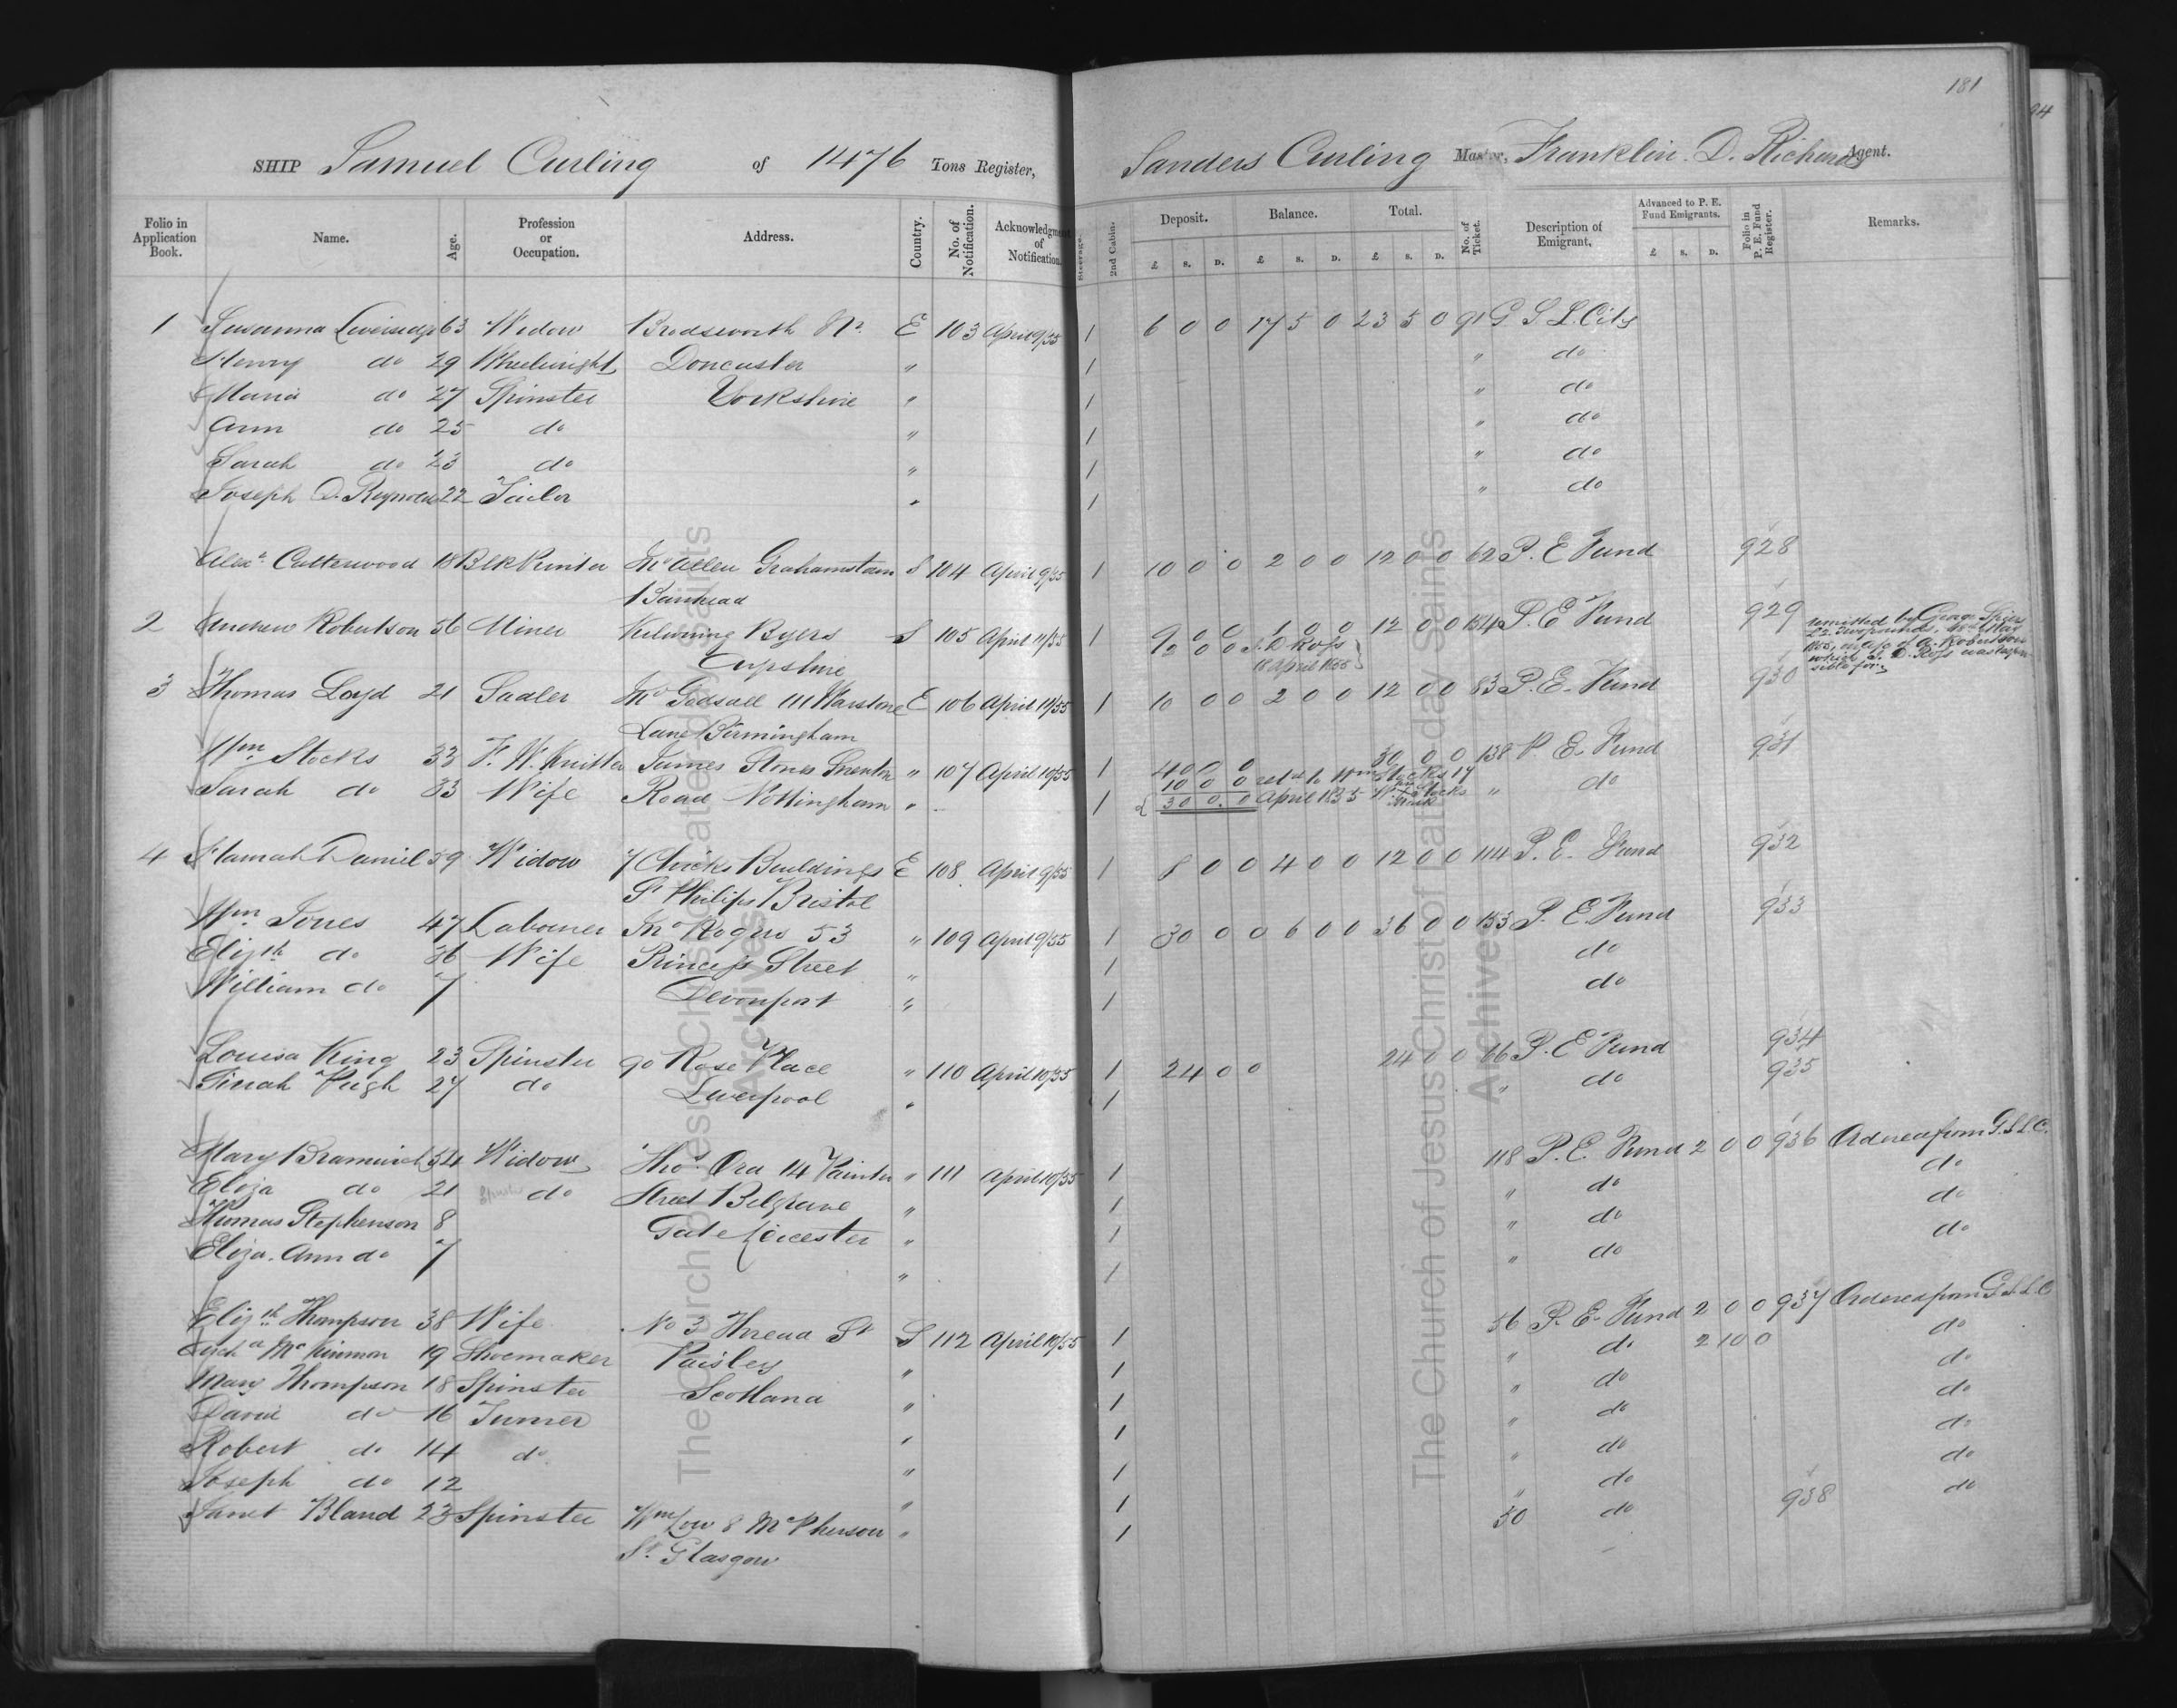 181
94
SHIP Samuel Curling of 1476 Tons Register, Sanders Curling Master, Franklin. D. Richards Agent.
Folio in Application Book. Name. Age. Profession or Occupation. Address. Country. No. of Notification. Acknowledgment of Notification. Steerage. 2nd Cabin. Deposit. Balance. Total. No. of Ticket. Description of Emigrant. Advanced to P. E. Fund Emigrants. Folio in P. E. Fund Register. Remarks.
£ S. D. £ S. D. £ S. D. £ S. D.
1 Susanna Liversedge 63 Widow Brodsworth Nr. E 103 April 9/55 1 6 0 0 17 5 0 23 5 0 91 G S L. City
Henry do 29 Wheelwright Doncaster " 1 " do
Maria do 27 Spinster Yorkshire " 1 " do
Ann do 25 do " 1 " do
Sarah do 23 do " 1 " do
Joseph D. Reynolds 22 Tailor " 1 " do
Alexr Catterwood 18 Blk Printer Mc Allen Grahamstown S 104 April 9/55 1 10 0 0 2 0 0 12 0 0 62 P. E Fund 928
Bainhead
2 Andrew Robertson 56 Miner Kilwining Byers S 105 April 11/55 1 9 0 0 1 0 0 12 0 0 134 P. E Fund 929 remitted by George Spiers
2 0 0 J. D Ross
Ayrshire 18 April 1855 which J. D. Ross was responsible for
3 Thomas Loyd 21 Sadler Mr Godsall 111 Warstone E 106 April 11/55 1 10 0 0 2 0 0 12 0 0 83 P. E. Fund 930
Lane Birmingham
Wm Stocks 33 F. W. Knitter James Stones Snenton " 107 April 10/55 1 40 0 0 30 0 0 138 P E Fund 931
10 0 0 retd to Wm Stocks 17
Sarah do 33 Wife Road Nottingham " 1 30 0 0 April 1855 " do
4 Hannah Daniel 59 Widow 7 Chicks Buildings E 108 April 9/55 1 8 0 0 4 0 0 12 0 0 114 P. E. Fund 932
St Philips Bristol
Wm Jones 47 Labourer Jno Rogers 53 " 109 April 9/55 1 30 0 0 6 0 0 36 0 0 153 P. E Fund 933
Elizth do 36 Wife Princess Street " 1 do
William do 7 Devonport " 1 do
Louisa King 23 Spinster 90 Rose Place " 110 April 10/55 1 24 0 0 24 0 0 66 P. E Fund 934
Tirrah Pugh 27 do Liverpool " 1 " do 935
Mary Bramwich 54 Widow Thos. Ord 14 Painter " 111 April 10/55 1 118 P. E. Fund 2 0 0 936 Ordered from G. S. L. C.
Eliza do 21 Spinster do Street Belgrave " 1 " do do
Thomas Stephenson 8 Gate Leicester " 1 " do do
Eliza. Ann do 7 " 1 " do do
Elizth Thompson 38 Wife No 3 Thread St S 112 April 10/55 1 56 P. E. Fund 2 0 0 937 Ordered from G. S. L. C
Archd Mc Kinnon 19 Shoemaker Paisley " 1 " do 2 10 0 do
Mary Thompson 18 Spinster Scotland " 1 " do do
David do 16 Turner " 1 " do do
Robert do 14 do " 1 " do do
Joseph do 12 " 1 " do do
Janet Bland 23 Spinster Wm Low 8 McPherson " 1 50 do 938 do
St. Glasgow
The Church of Jesus Christ of Latter-day Saints
Archives
The Church of Jesus Christ of Latter-day Saints
Archives